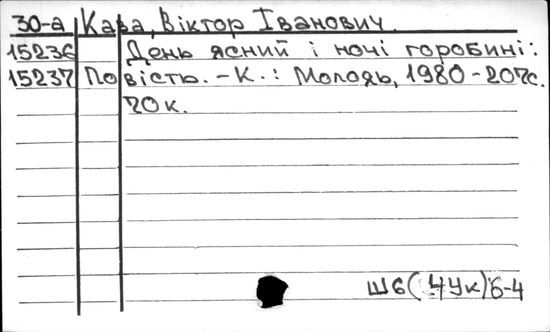 30-а Кава, Віктор Іванович.
15236 День ясний і ночі горобині:
15237 Повість. – К.: Молодь, 1980 - 207с.
70к.
Ш6(4Ук)6-4